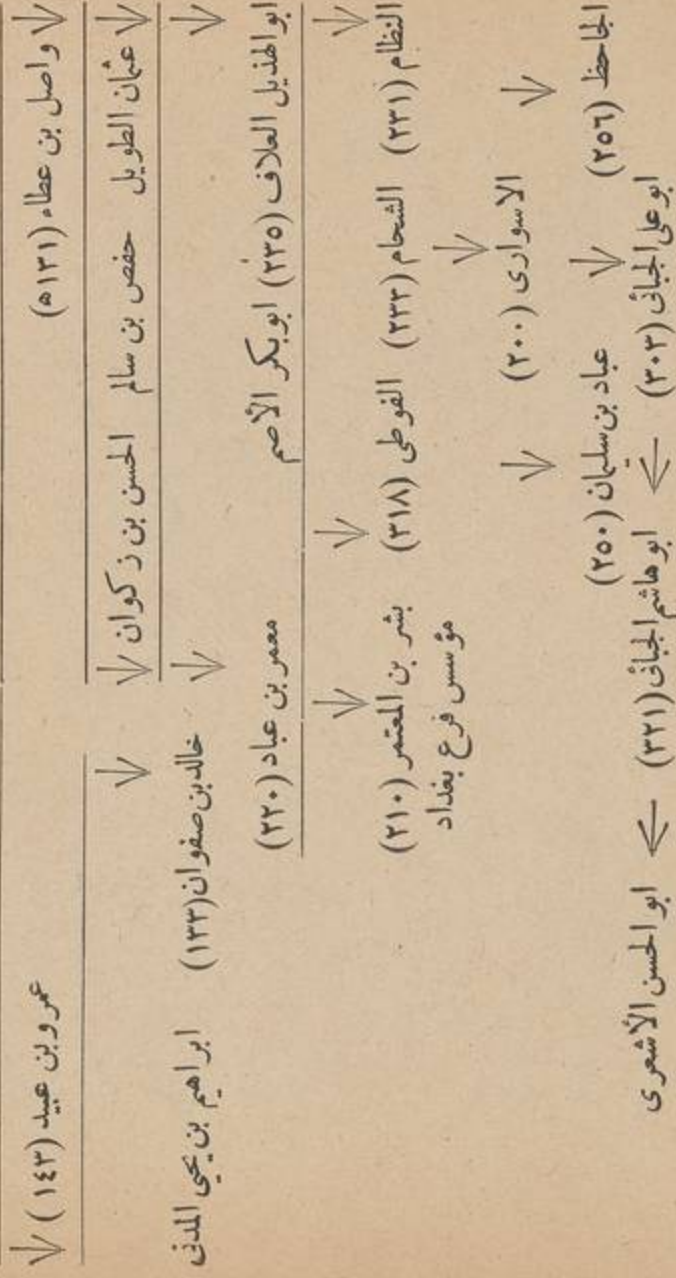 واصل بن عطاء (١٣١ه)
عمرو بن عبيد (١٤٣)
عثمان الطويل حفص بن سالم الحسن بن ذكوان
خالد بن صفوان (١٣٣) ابراهيم بن يحيى المدنى
ابو الهذيل العلاف (٢٣٥) ابوبكر الأصم
معمر بن عباد (٢٢٠)
النظام (٢٣١) الشحام (٢٣٣) الفوطى (٣١٨)
بشر بن المعتمر (٢١٠)
مؤسس فرع بغداد
الاسوارى (٢٠٠)
الجاحظ (٢٥٦)
عباد بن سليمان (٢٥٠)
ابو على الجبائى (٣٠٣) ابو هاشم الجبائى (٣٢١) ابو الحسن الأشعرى